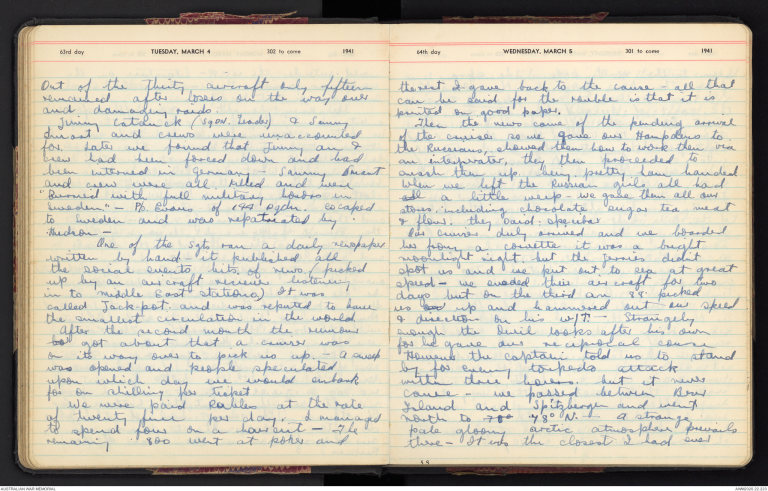 63rd day TUESDAY, MARCH 4 302 to come 1941
Out of the thirty aircraft only fifteen
remained after loses on the way over
and damaging raids.
Jimmy Catanach (Sqdn. Leader) & Sammy
and crews were unaccounted
for. Later we found that Jimmy and
crew had been forced down and had
been interned in Germany - Sammy
and crew were all killed and were
"Burried with full military honors in
Sweden" - P/O Evans of 144 Sqdn. escaped
to Sweden and was repatriated by
Hudson -
One of the Sgts ran a daily newspaper
written by hand - it published all
the social events, bits of news (picked
up by an aircraft receiver listening
in to middle East stations) It was
called Jackpot and was reputed to have
the smallest circulation in the world
After the second month the rumour
got about that a cruiser was
on its way over to pick us up. - A sweep
was opened and people speculated
upon which day we would embark
for on shilling per ticket
We were paid Roubles at the rate
of twenty five per day, I managed
to spend four on a haircut - The
remaining 800 went at poker and
64th day WEDNESDAY, MARCH 5 301 to come 1941
the rest I gave back to the cause - all that
can be said for the rouble is that it is
printed on good paper.
Then the news came of the pending arrival
of the cruiser so we gave our Hampdens to
the Russians, showed them how to work them via
an interpreter, they then proceeded to
crash them up, being pretty ham handed
When we left the Russian girls all had
a little weep - we gave them all our
stores including chocolate sugar tea meat
& flour. they said - spasibar
Our cruiser duly arrived and we boarded
her from a corvette it was a bright
moonlight night but the jerries didn't
spot us and we put out to sea at great
speed - we evaded their aircraft for two
days but on the third an 88 picked
us up and hammered out our speed
& direction on his w/T. - Strangely
enough the Devil looks after his own
for he gave our reciprocal course
However the captain told us to stand
by for enemy torpedo attack
within three hours. but it never
came - we passed between Bear
Island and Spitzbergen and went
North to 78° N. - A strange
pale gloomy arctic atmosphere prevails
there - It was the closest I had ever
AUSTRALIAN WAR MEMORIAL